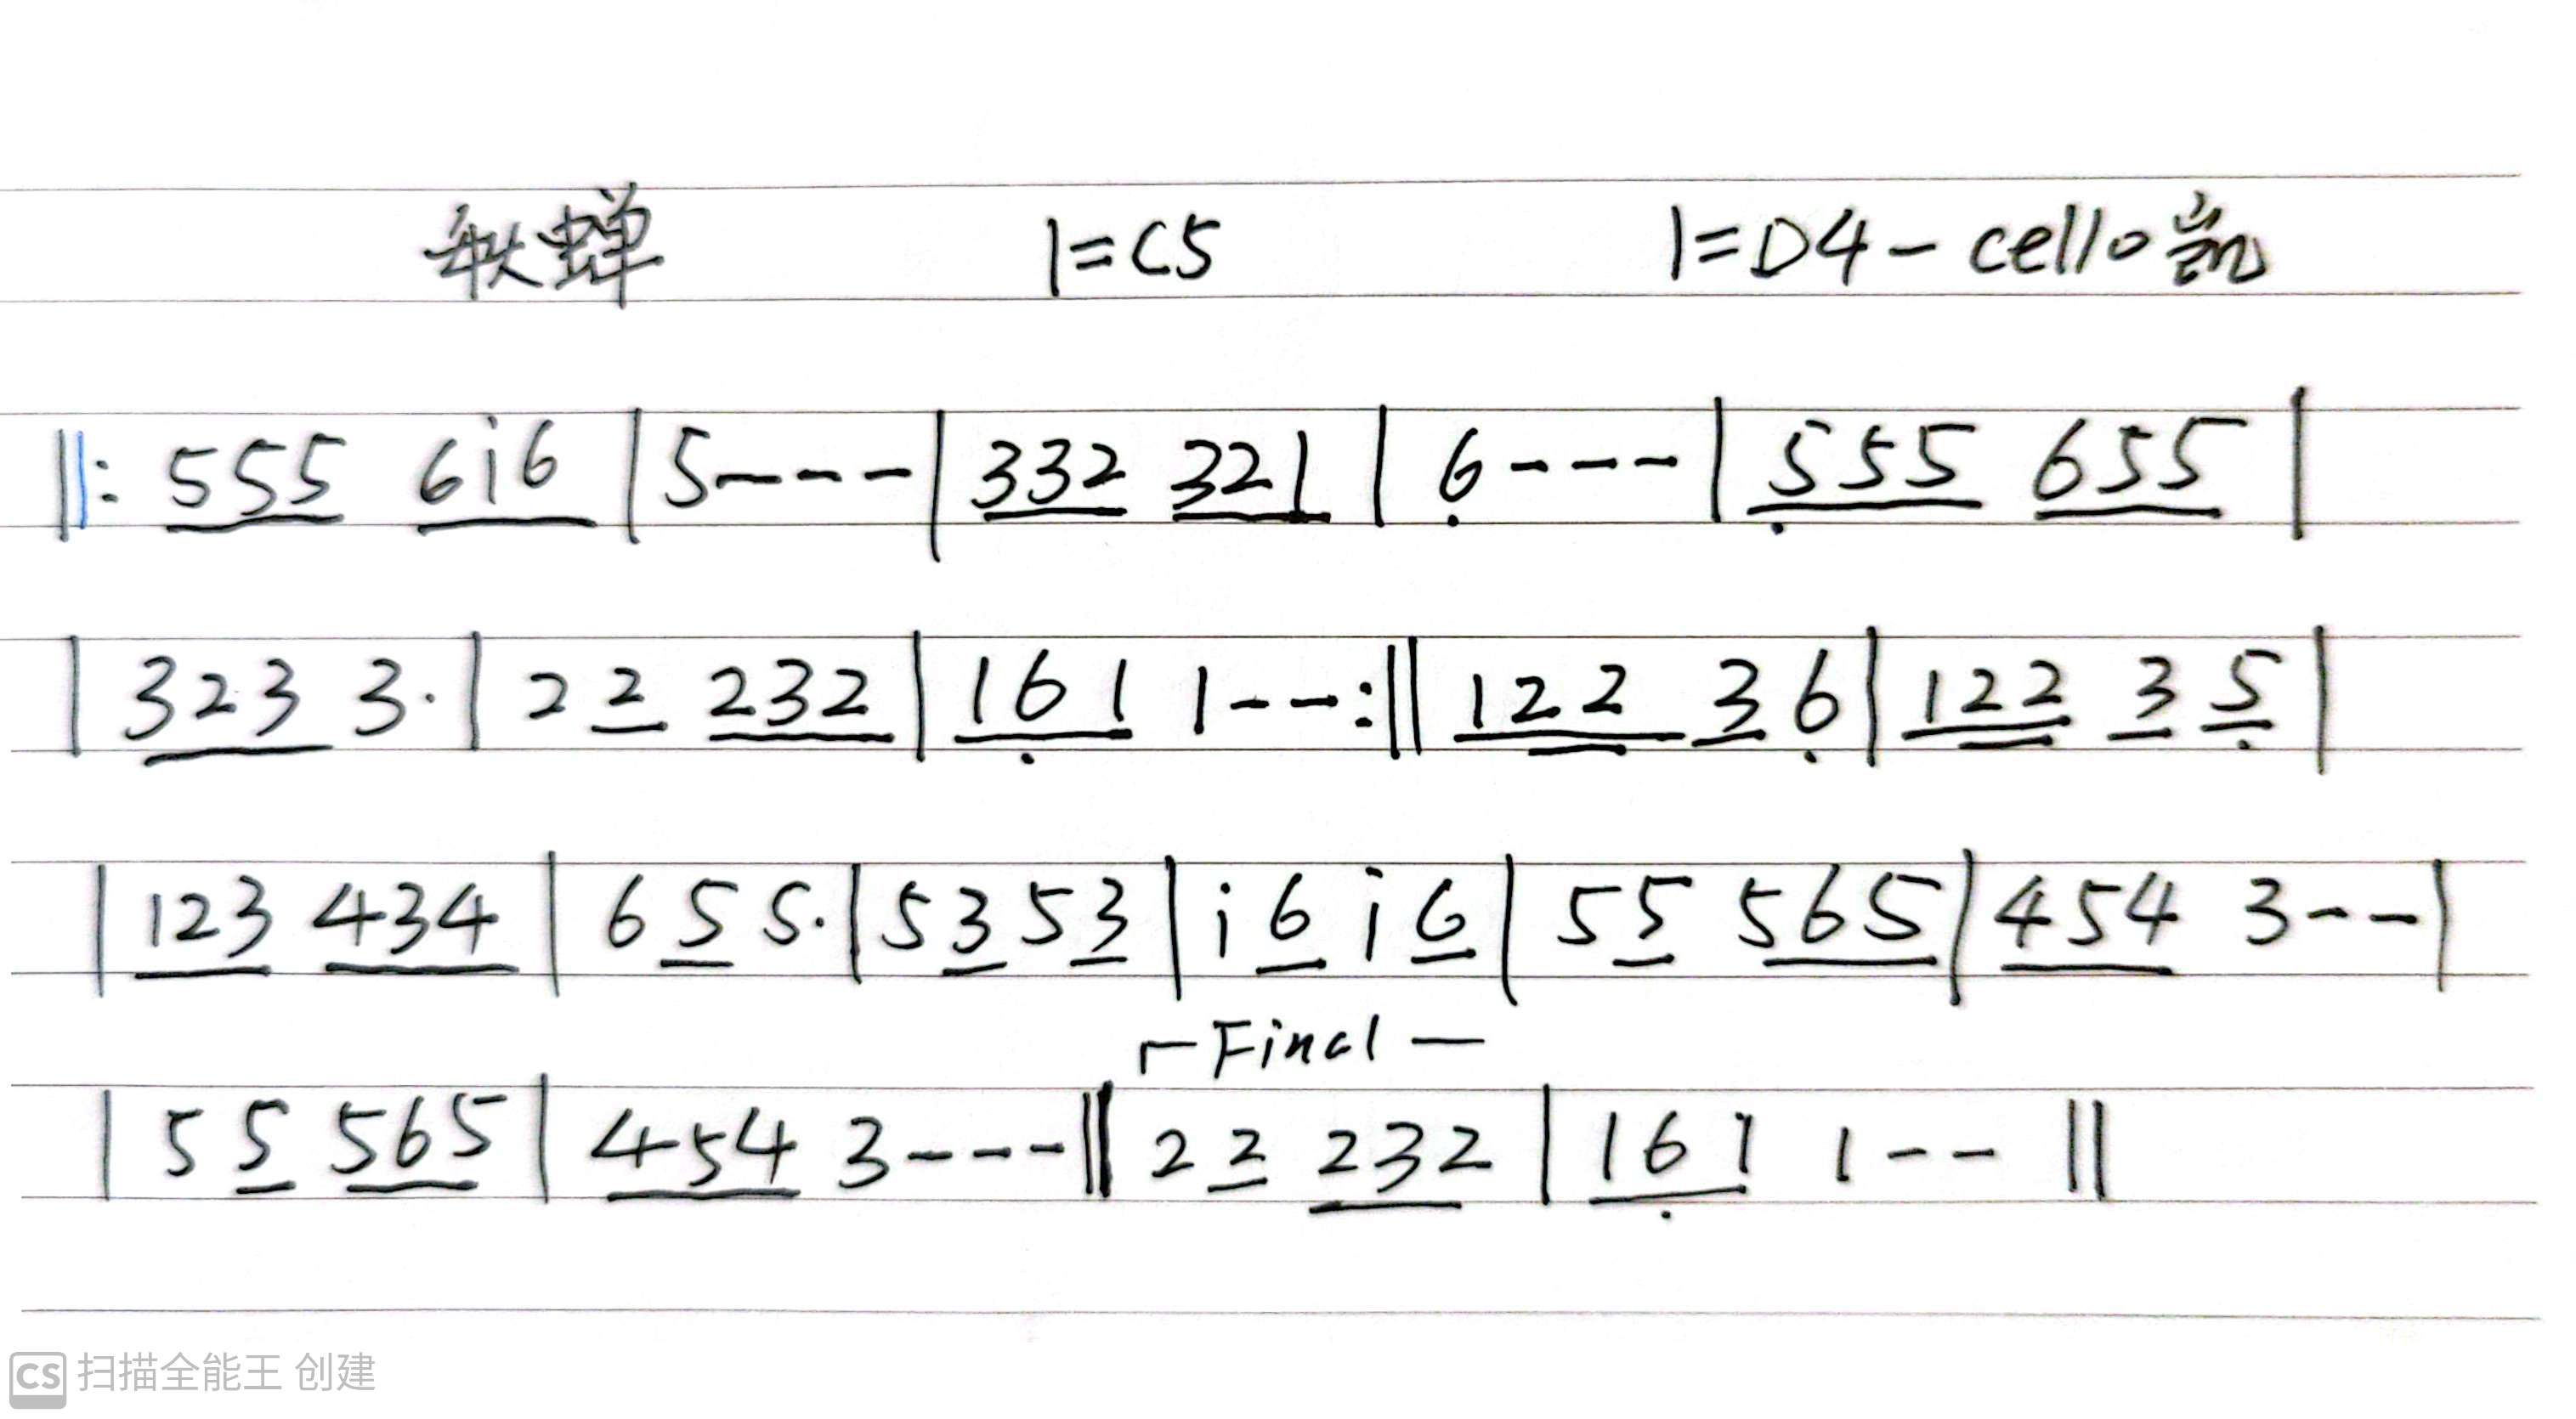 秋蝉 1=C5 1=D4-cello
||: 555 6i6 | 5--- | 332 321 | 6̣--- | 5̣55 655 |
| 323 3. | 2 2 232 | 16̣1 1--:|| 122 3 6̣ | 122 3 5̣ |
| 123 434 | 6 5 5. | 5 3 5 3 | i 6 i 6 | 5 5 565 | 454 3-- |
┌ Final —
| 5 5 565 | 454 3---|| 2 2 232 | 16̣1 1-- ||
CS 扫描全能王 创建